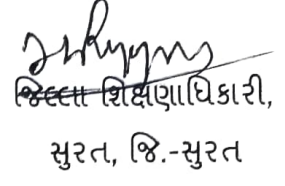 જિલ્લા શિક્ષણાધિકારી,
સુરત, જિ.-સુરત